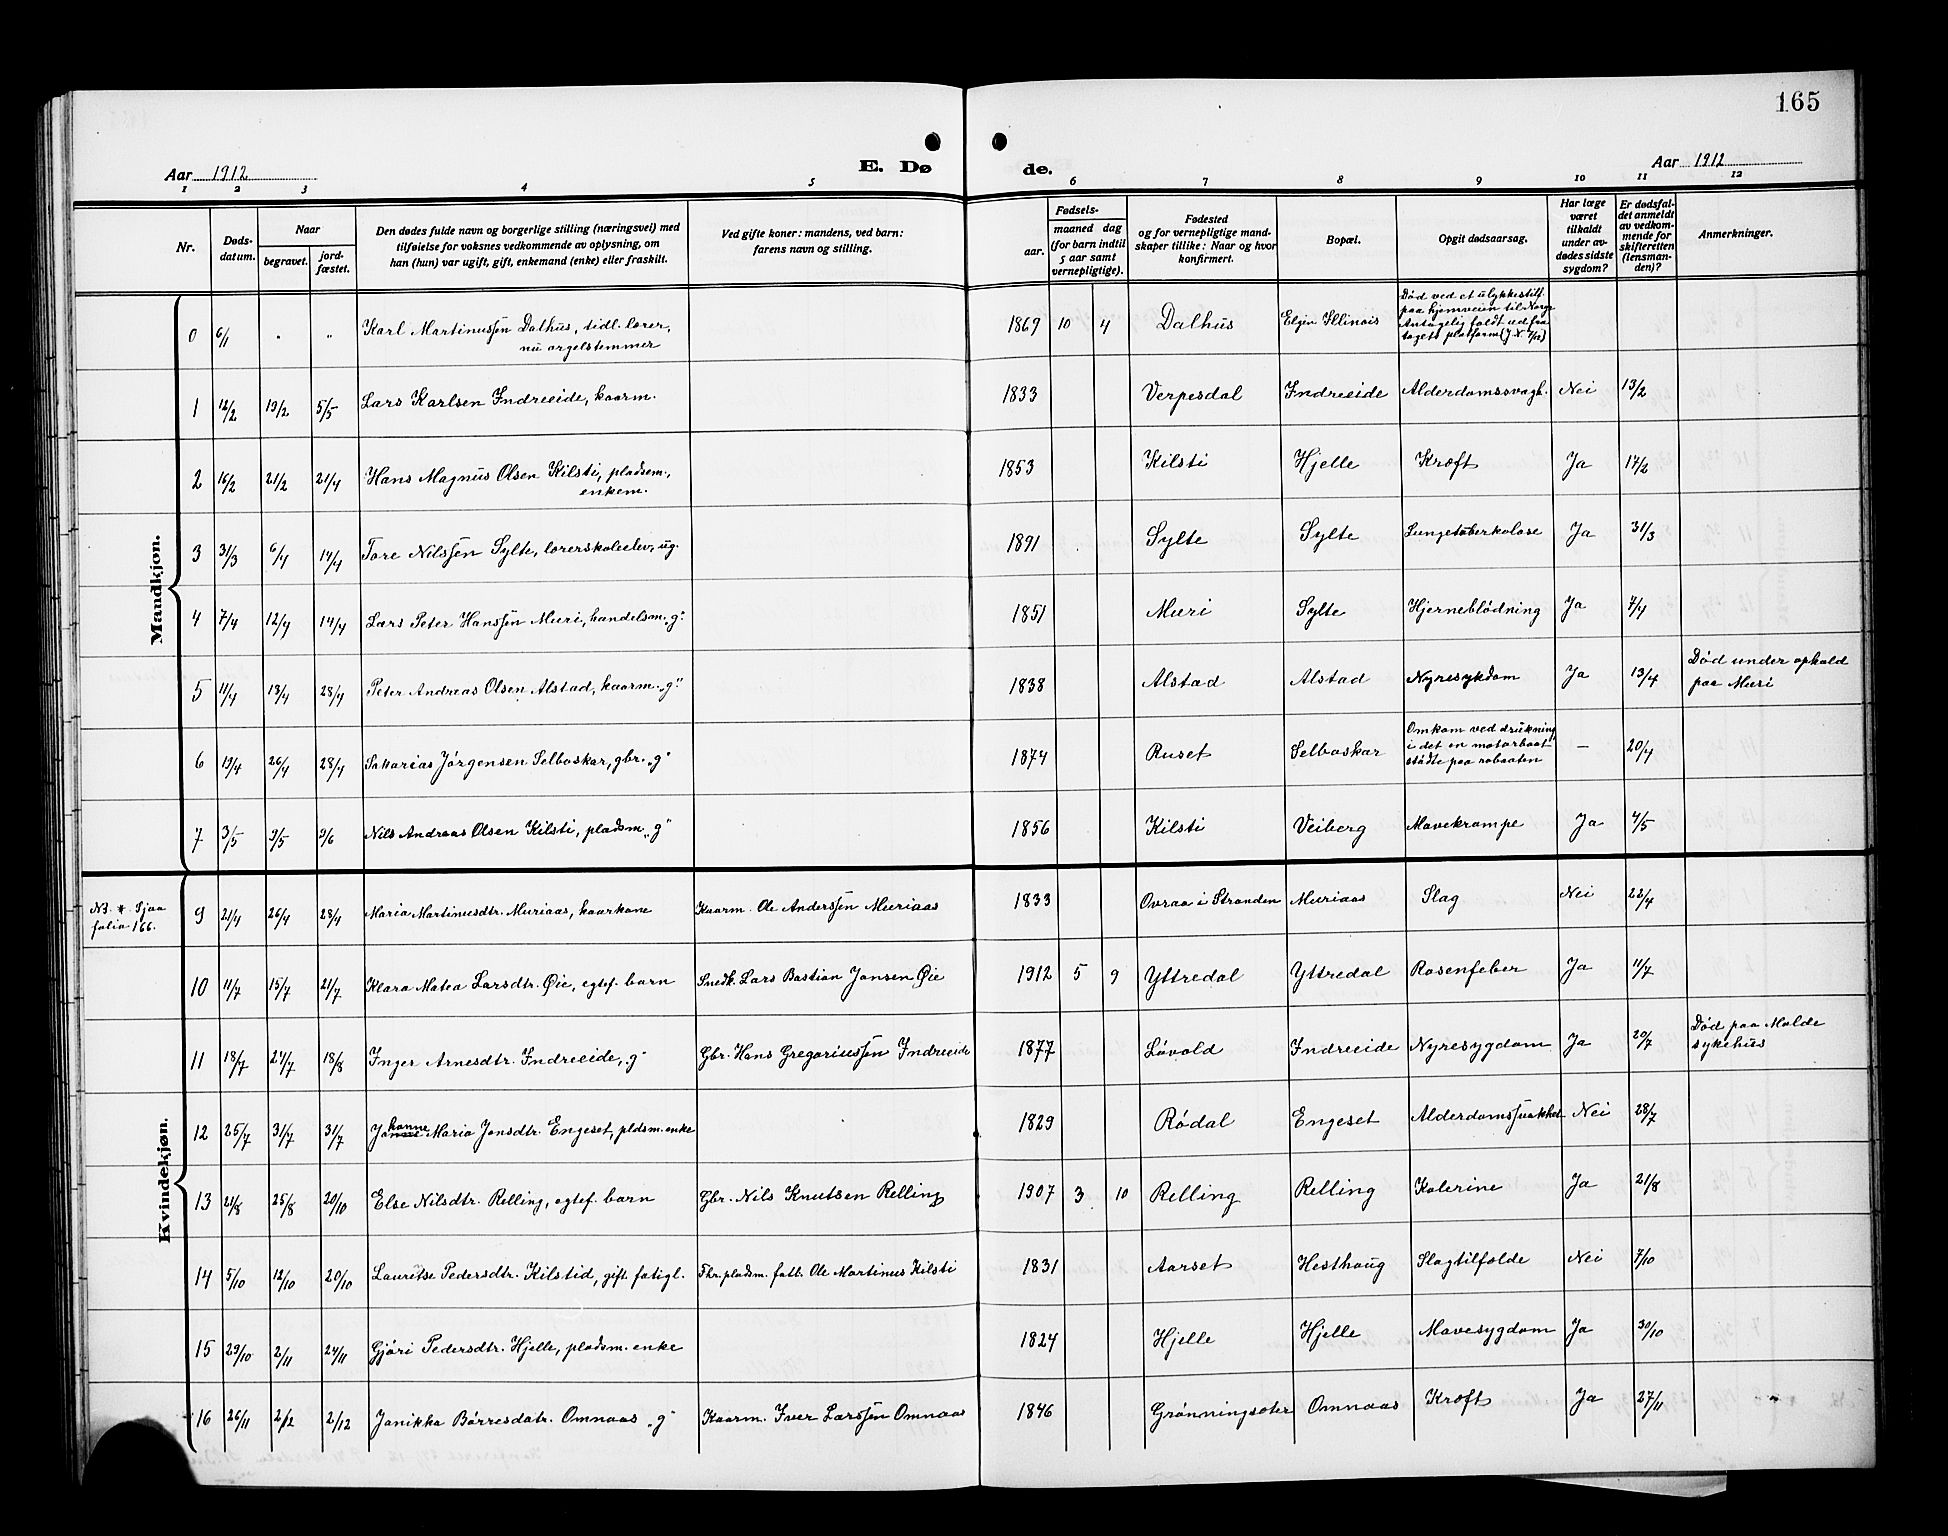 165
Aar 1912
E. Dø
de.
Aar 1912
1 2 3 4 5 6 7 8 9 10 11 12
Nr.
Døds-
datum.
Naar
begravet.
jord-
fæstet.
Den dødes fulde navn og borgerlige stilling (næringsvei) med
tilføielse for voksnes vedkommende av oplysning, om
han (hun) var ugift, gift, enkemand (enke) eller fraskilt.
Ved gifte koner: mandens, ved barn:
farens navn og stilling.
aar.
Fødsels-
maaned dag
(for barn indtil
5 aar samt
vernepligtige).
Fødested
og for vernepligtige mand-
skaper tillike: Naar og hvor
konfirmert.
Bopæl.
Opgit dødsaarsag.
Har læge
været
tilkaldt
under av-
dødes sidste
sygdom?
Er dødsfal-
det anmeldt
av vedkom-
mende for
skifteretten
(lensman-
den)?
Anmerkninger.
Mandkjøn.
0 6/1 " " Karl Martinussen Dalhus, tidl. lærer,
nu orgelstemmer
1869 10 4 Dalhus Elgin Illinois
Død ved et ulykkestilf.
paa hjemveien til Norge
Antagelig faldt ud fra
togets platform
1 12/2 19/2 5/5 Lars Karlsen Indreeide, kaarm. 1833 Verpesdal Indreeide Alderdomssvagh. Nei 13/2
2 16/2 21/2 21/4 Hans Magnus Olsen Kilsti, pladsm.,
enkem.
1853 Kilsti Hjelle Kræft Ja 17/2
3 31/3 6/4 14/4 Tore Nilssen Sylte, lærerskoleelev, ug. 1891 Sylte Sylte Lungetuberkulose Ja 31/3
4 7/4 12/4 14/4 Lars Peter Hanssen Muri, handelsm. „g" 1851 Muri Sylte Hjerneblödning Ja 7/4
5 11/4 18/4 28/4 Peter Andreas Olsen Alstad, kaarm. „g" 1838 Alstad Alstad Nyresykdom Ja 13/4 Død under ophold
paa Muri
6 19/4 26/4 28/4 Sakarias Jørgensen Selboskar, gbr. „g" 1874 Ruset Selboskar
Omkom ved drukning
i det en motorbaat
stødte paa robaaten
— 20/4
7 3/5 9/5 9/6 Nils Andreas Olsen Kilsti, pladsm. „g" 1856 Kilsti Veiberg Mavekrampe Ja 4/5
Kvindekjøn.
NB. * Sjaa
folio 166.
9 21/4 26/4 28/4 Maria Martinusdtr. Muriaas, kaarkone Kaarm. Ole Anderssen Muriaas 1833 Ovraa i Stranden Muriaas Slag Nei 22/4
10 11/7 15/7 21/7 Klara Matea Larsdtr. Øie, egtef. barn Snedk. Lars Bastian Jonsen Øie 1912 5 9 Yttredal Yttredal Rosenfeber Ja 11/7
11 18/7 24/7 18/8 Inger Arnesdtr. Indreeide, „g" Gbr. Hans Gregoriussen Indreeide 1877 Løvold Indreeide Nyresygdom Ja 20/7 Død paa Molde
sykehus
12 25/7 31/7 31/7 Johanne Maria Jonsdtr. Engeset, pldsm. enke 1829 Rødal Engeset Alderdomssvakhet Nei 28/7
13 21/8 25/8 20/10 Else Nilsdtr. Relling, egtef. barn Gbr. Nils Knutsen Relling 1907 3 10 Relling Relling Kolerine Ja 21/8
14 5/10 12/10 20/10 Lauritse Pedersdtr. Kilstid, gift. fatigl. Fhr. pladsm. fatt. Ole Martinus Kilsti 1831 Aarset Hesthaug Slagtilfælde Nei 7/10
15 29/10 2/11 24/11 Gjøri Pedersdtr. Hjelle, pladsm. enke 1824 Hjelle Hjelle Mavesygdom Ja 30/10
16 26/11 2/12 2/12 Janikka Børresdatr. Omnaas „g" Kaarm. Iver Larssen Omnaas 1846 Grønningsæter Omnaas Kræft Ja 27/11